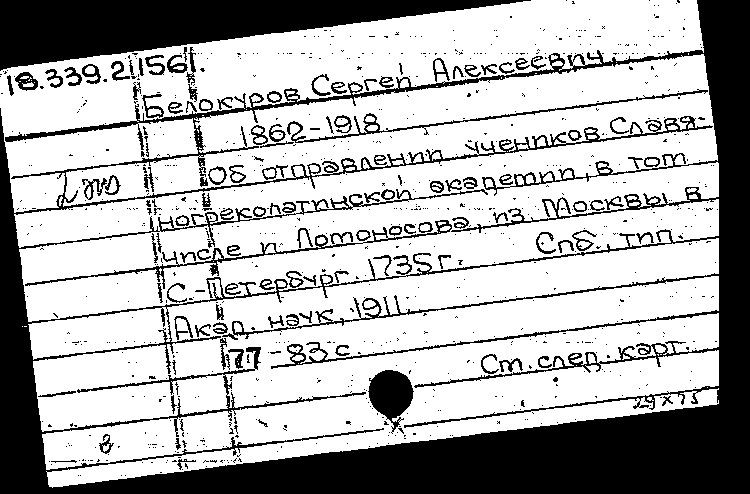 18.339.2.1561.
Белокуров, Сергей Алексеевич.
1862-1918.
Об отправлении учеников Славя-
ногреколатинской академии, в том
числе и Ломоносова, из Москвы в
С.-Петербург. 1735 г. Спб., тип.
Акад. наук, 1911.
77-83 с.
Ст. след. карт.
29 x 75
в